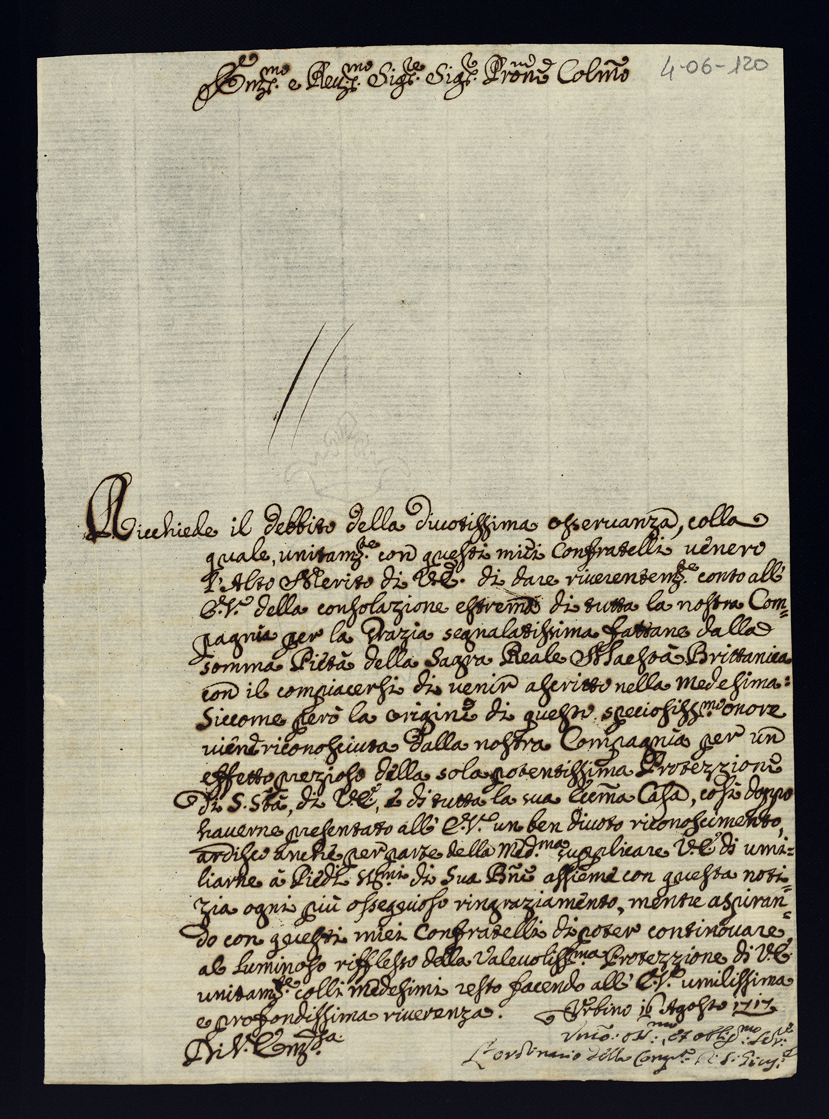 Em̃z.mo e Reu.mo Sig.re Sig.re Pron̄e Colm̃o 4-06-120
Ricchiede il debbito della divotissima osseruanza, colla
quale, unitam.te con questi miei Confratelli venero
l'Alto Merito di V.E. di dare riverentem.te conto all'
E.V. della consolazione estrema di tutta la nostra Com=
pagnia per la Grazia segnalatissima fattane dalla
somma Pietà della Sagra Reale Maestà Brittanica
con il compiacersi di venir ascritto nella medesima:
Siccome però la origine di questo speciosiss.mo onore
viene riconosciuta dalla nostra Compagnia per un
effetto prezioso della sola potentissima Protezzione
di S. Stà, di V.E., e di tutta la sua Eccma Casa, così doppo
haverne presentato all' E.V. un ben divoto riconoscimento,
ardisco anche per parte della Med.ma supplicare V.E. di umi=
liarne à Piedi SS.mi di Sua Bne assieme con questa noti=
zia ogni più ossequioso ringraziamento, mentre aspiran=
do con questi miei Confratelli di poter continovare
al luminoso rifflesso della Valevoliss.ma Protezzione di V.E.
unitam.te colli medesimi resto facendo all' E.V. umilissima
e profondissima riverenza. Urbino 16 Agosto 1717
Di V. Em̃za
Umo: et oblig.mo Ser.re
L'ordinario della Comp.